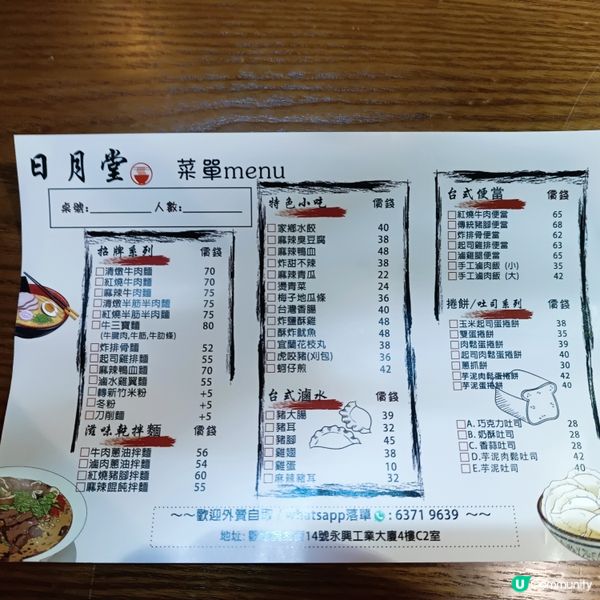 日月堂 菜單menu
桌號:________ 人數:________
招牌系列 價錢
清燉牛肉麵 70
紅燒牛肉麵 70
麻辣牛肉麵 75
清燉半筋半肉麵 75
紅燒半筋半肉麵 75
牛三寶麵 80
(牛腩肉,牛筋,牛肋條)
炸排骨麵 52
起司雞排麵 55
麻辣鴨血麵 70
滷水雞翼麵 55
轉新竹米粉 +5
冬粉 +5
刀削麵 +5
滋味乾拌麵 價錢
牛肉蔥油拌麵 56
滷肉蔥油拌麵 54
紅燒豬腳拌麵 60
麻辣餛飩拌麵 55
特色小吃 價錢
家鄉水餃 40
麻辣臭豆腐 38
麻辣鴨血 48
炸甜不辣 38
麻辣青瓜 22
燙青菜 24
梅子地瓜條 36
台灣香腸 40
炸鹽酥雞 48
酥炸魷魚 50
宜蘭花枝丸 38
虎咬豬(刈包) 36
蚵仔煎 42
台式滷水 價錢
豬大腸 39
豬耳 32
豬腳 45
雞翅 38
雞蛋 10
麻辣豬耳 32
台式便當 價錢
紅燒牛肉便當 65
傳統豬腳便當 68
炸排骨便當 62
起司雞排便當 63
滷雞腿便當 62
手工滷肉飯 (小) 35
手工滷肉飯 (大) 42
捲餅/吐司系列 價錢
玉米起司蛋捲餅 38
雙蛋捲餅 35
肉鬆蛋捲餅 39
起司肉鬆蛋捲餅 40
蔥抓餅 30
芋泥肉鬆蛋捲餅 42
芋泥蛋捲餅 40
A. 巧克力吐司 28
B. 奶酥吐司 28
C. 香蒜吐司 28
D.芋泥肉鬆吐司 42
E.芋泥吐司 40
～～歡迎外賣自取 whatsapp落單 : 6371 9639 ～～
地址: 14號永興工業大廈4樓C2室
U Community